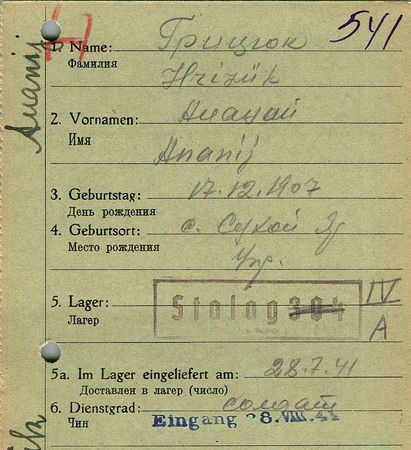 541
1. Name: Грицюк
Фамилия
Hrizük
2. Vornamen: Ананий
Имя
Ananij
3. Geburtstag: 17.12.1907
День рождения
4. Geburtsort: с. Сухой Яр
Место рождения
Укр.
5. Lager: Stalag 304 IV
Лагер
A
5a. Im Lager eingeliefert am: 28.7.41
Доставлен в лагер (число)
6. Dienstgrad: солдат
Чин
Eingang 28. VIII. 41
Ananij